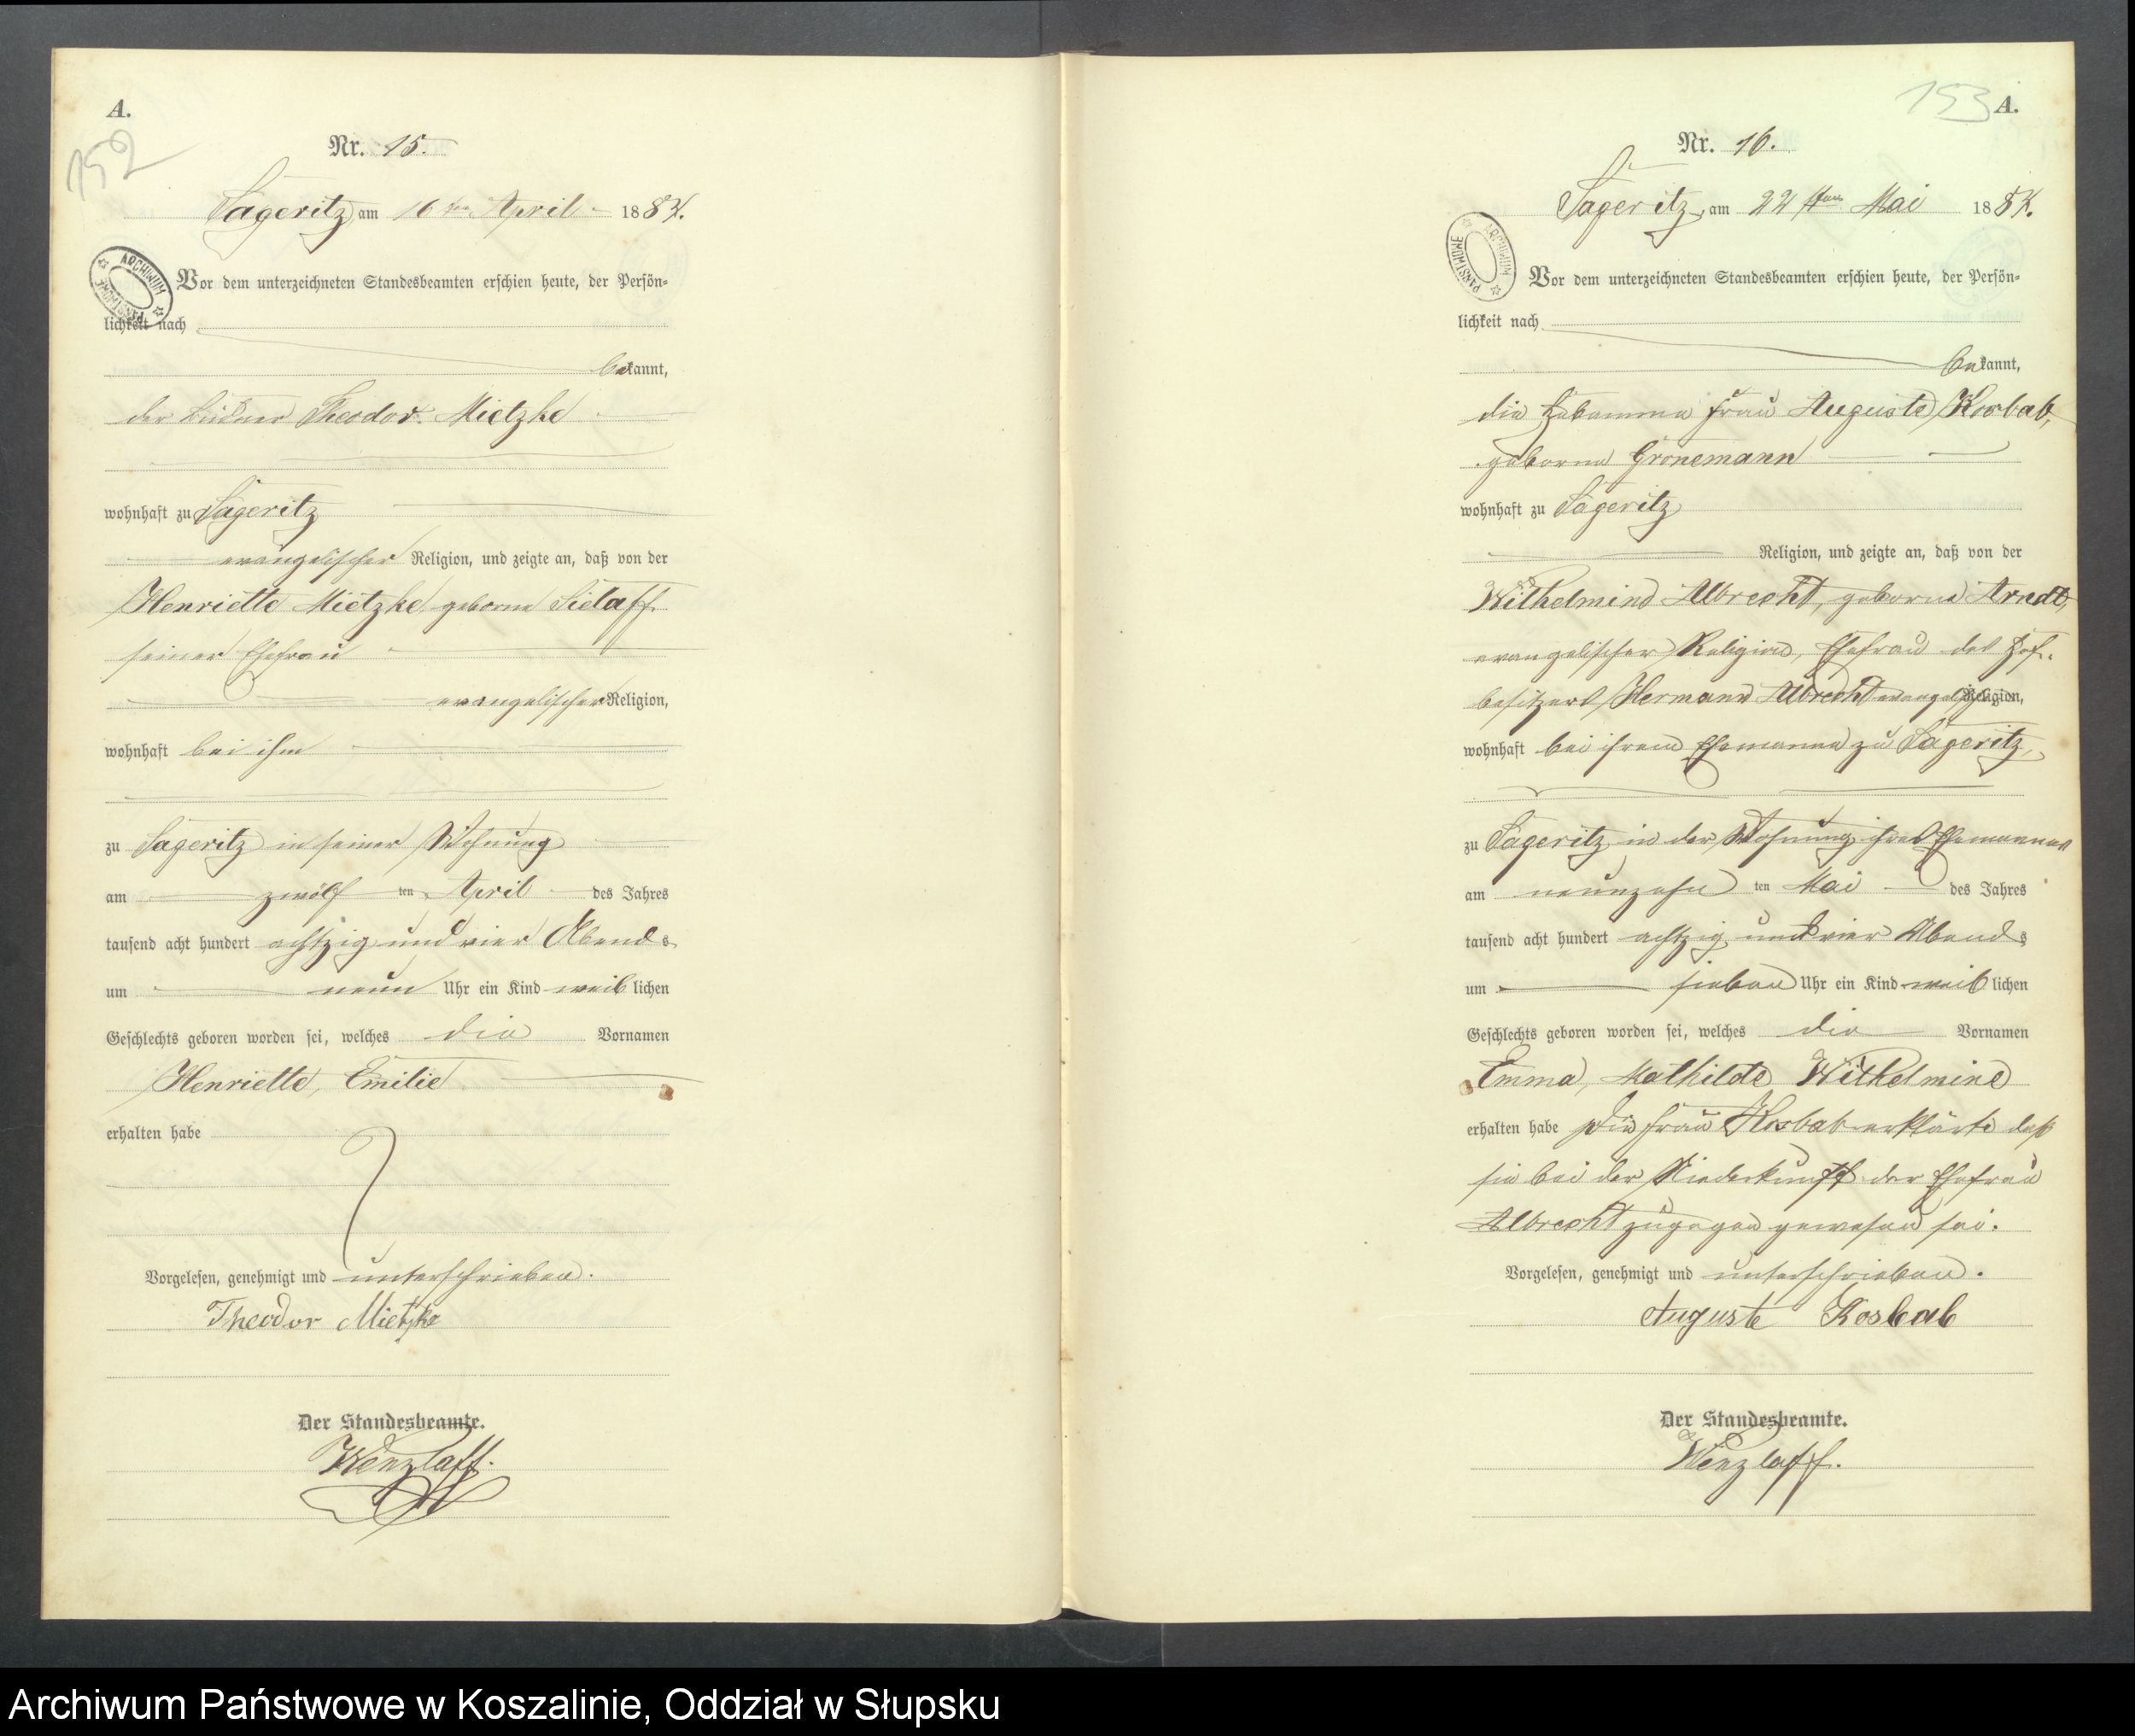 A.
152
Nr. 15.
Sageritz am 16ten April 1884.
ARCHIWUM PAŃSTWOWE
Vor dem unterzeichneten Standesbeamten erschien heute, der Persön-
lichkeit nach
bekannt,
der Büdner Theodor Mietzke
wohnhaft zu Sageritz
evangelischer Religion, und zeigte an, daß von der
Henriette Mietzke geborne Sielaff
seiner Ehefrau
evangelischer Religion,
wohnhaft bei ihm
zu Sageritz in seiner Wohnung
am zwölf ten April des Jahres
tausend acht hundert achtzig und vier Abends
um neun Uhr ein Kind weiblichen
Geschlechts geboren worden sei, welches die Vornamen
Henriette, Emilie
erhalten habe
Vorgelesen, genehmigt und unterschrieben.
Theodor Mietzke
Der Standesbeamte.
Wenzlaff.
153 A.
Nr. 16.
Sageritz, am 22ten Mai 1884.
ARCHIWUM PAŃSTWOWE
Vor dem unterzeichneten Standesbeamten erschien heute, der Persön-
lichkeit nach
bekannt,
die Hebamme Frau Auguste Kosbab,
geborne Gronemann
wohnhaft zu Sageritz
Religion, und zeigte an, daß von der
Wilhelmine Albrecht, geborne Arndt,
evangelischer Religion, Ehefrau des Hof-
besitzers Hermann Albrecht evangelischer Religion,
wohnhaft bei ihrem Ehemanne zu Sageritz,
zu Sageritz in der Wohnung ihres Ehemannes
am neunzehn ten Mai des Jahres
tausend acht hundert achtzig und vier Abends
um sieben Uhr ein Kind weiblichen
Geschlechts geboren worden sei, welches die Vornamen
Emma, Mathilde Wilhelmine
erhalten habe Die Frau Kosbab erklärte daß
sie bei der Niederkunft der Ehefrau
Albrecht zugegen gewesen sei.
Vorgelesen, genehmigt und unterschrieben.
Auguste Kosbab
Der Standesbeamte.
Wenzlaff.
Archiwum Państwowe w Koszalinie, Oddział w Słupsku